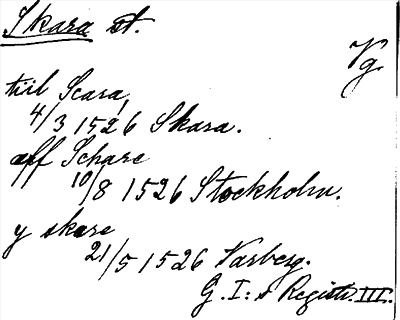 Skara st.
Vg
tiil Scara
4/3 1526 Skara.
aff Schare
10/8 1526 Stockholm.
y skare
21/5 1526 Varberg.
G. I:s Registr. III.